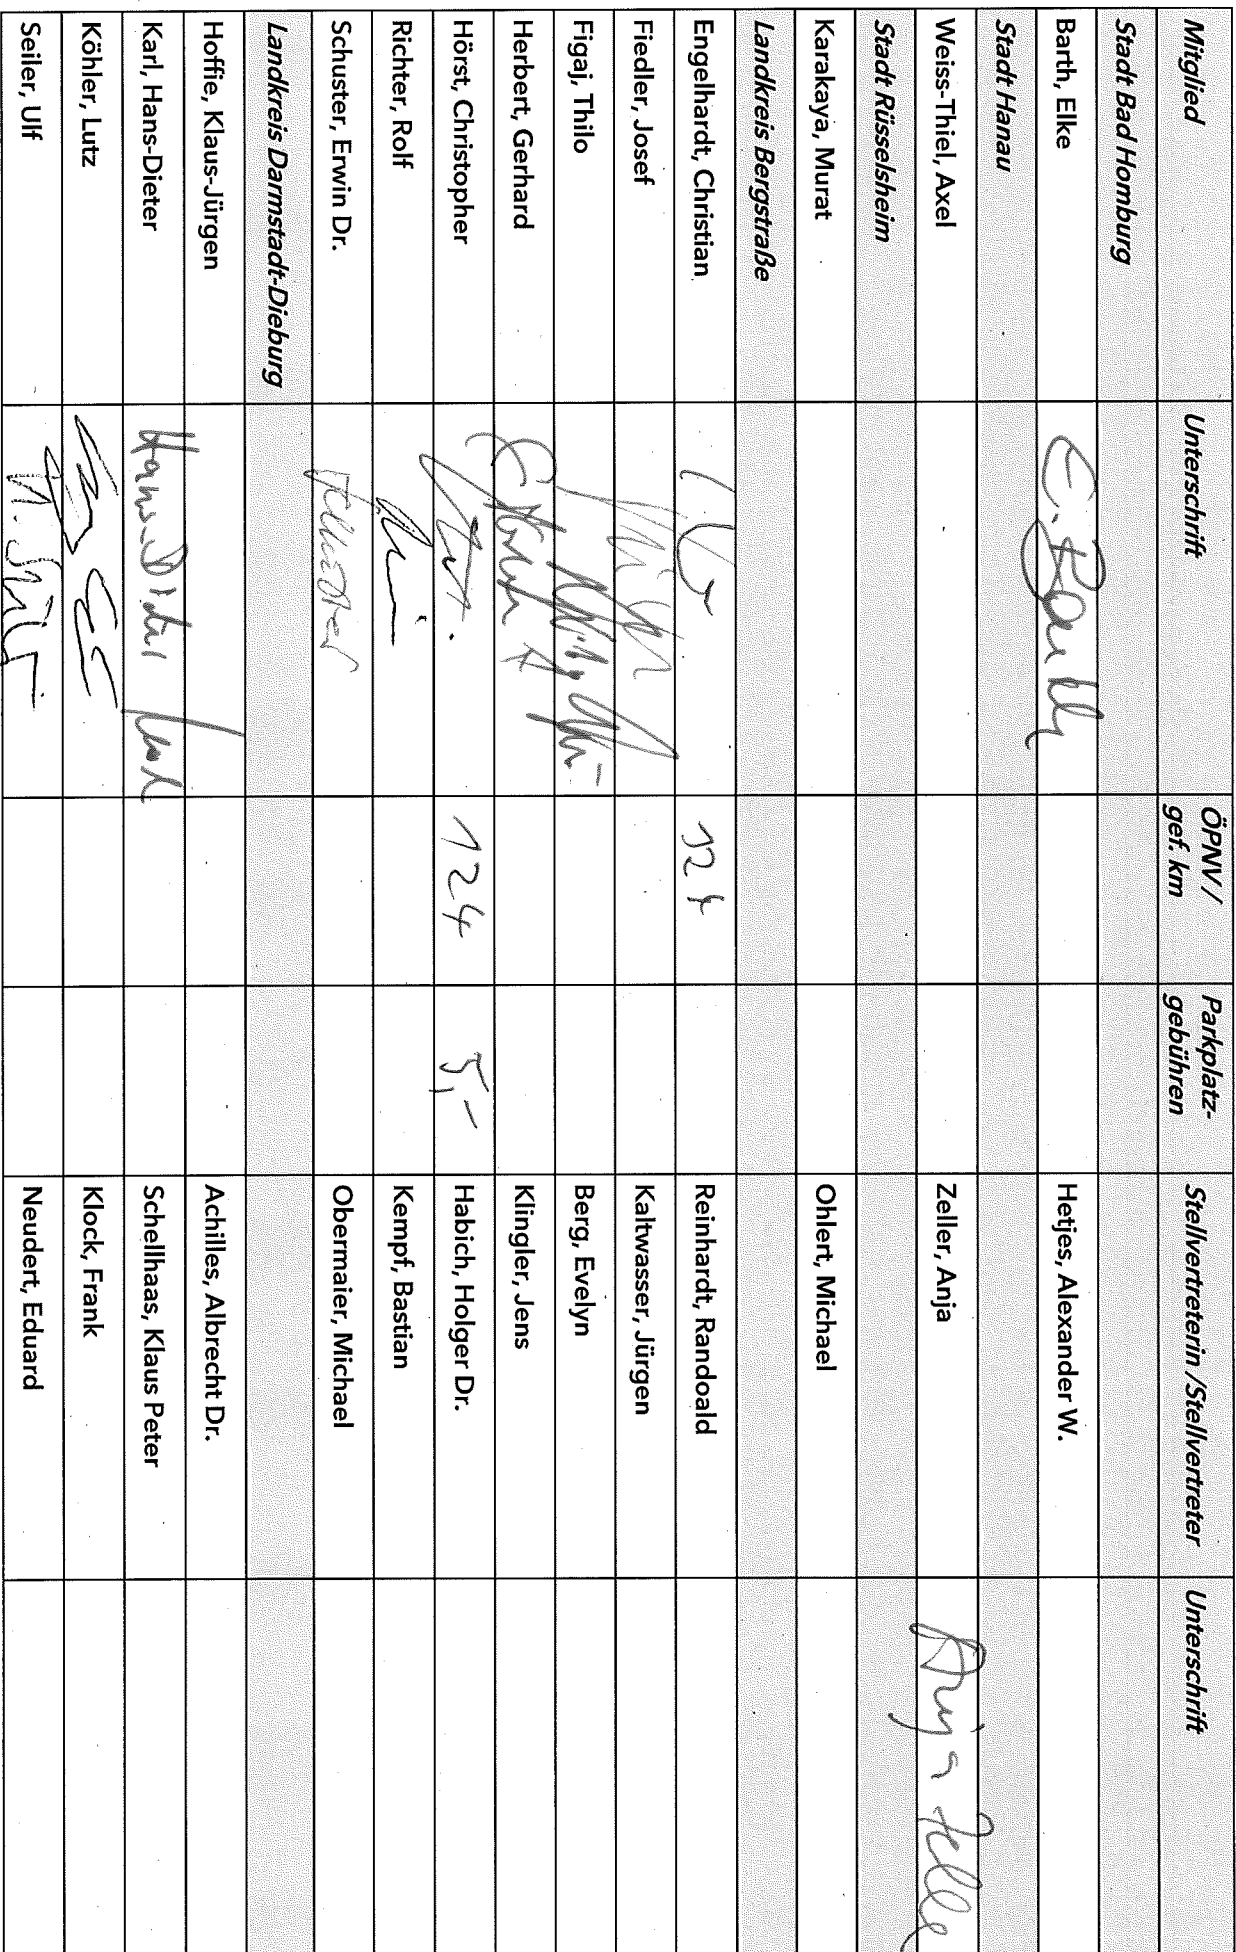 Mitglied Unterschrift ÖPNV / gef. km Parkplatz-gebühren Stellvertreterin /Stellvertreter Unterschrift
Stadt Bad Homburg
Barth, Elke E. Barth Hetjes, Alexander W.
Stadt Hanau
Weiss-Thiel, Axel Zeller, Anja Anja Zelle
Stadt Rüsselsheim
Karakaya, Murat Ohlert, Michael
Landkreis Bergstraße
Engelhardt, Christian Reinhardt, Randoald
Fiedler, Josef Kaltwasser, Jürgen
Figaj, Thilo Berg, Evelyn
Herbert, Gerhard Klingler, Jens
Hörst, Christopher 124 5,- Habich, Holger Dr.
Richter, Rolf Kempf, Bastian
Schuster, Erwin Dr. Obermaier, Michael
Landkreis Darmstadt-Dieburg
Hoffie, Klaus-Jürgen Achilles, Albrecht Dr.
Karl, Hans-Dieter Schellhaas, Klaus Peter
Köhler, Lutz Klock, Frank
Seiler, Ulf Neudert, Eduard